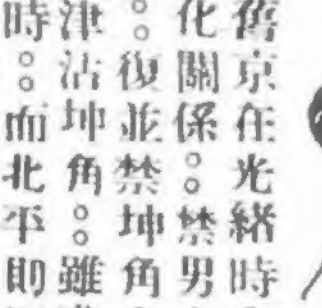 舊京在光緒時
化關係。。禁男
。。復並禁坤角
津沽坤角。。雖
時。。而北平則